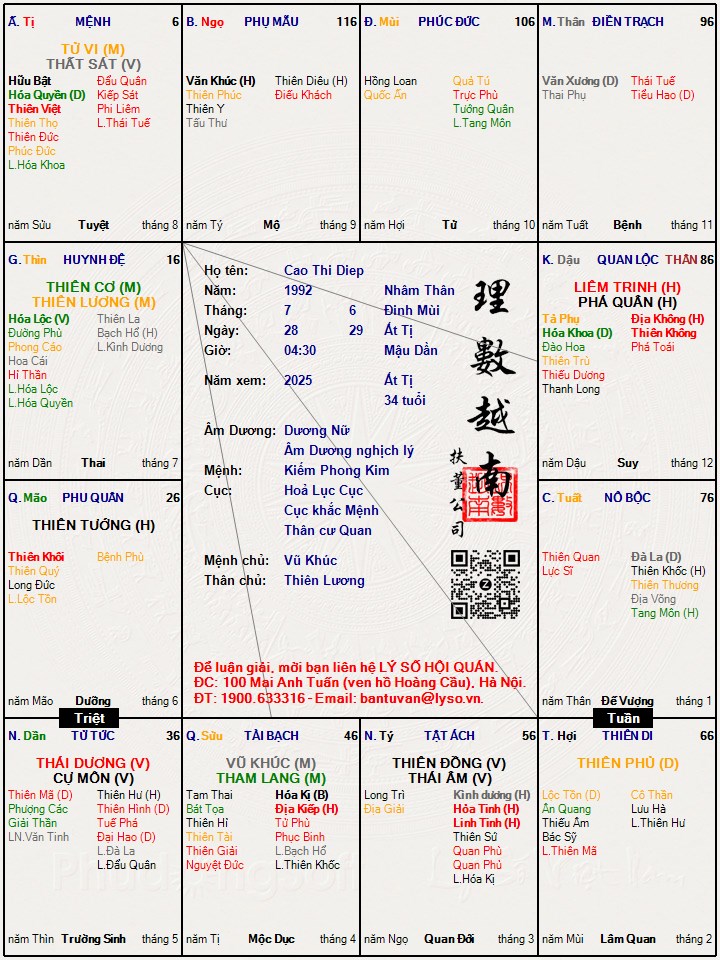 Ấ. Tị MỆNH 6
TỬ VI (M)
THẤT SÁT (V)
Hữu Bật Đẩu Quân
Hóa Quyền (D) Kiếp Sát
Thiên Việt Phi Liêm
Thiên Thọ L.Thái Tuế
Thiên Đức
Phúc Đức
L.Hóa Khoa
năm Sửu Tuyệt tháng 8
B. Ngọ PHỤ MẪU 116
Văn Khúc (H) Thiên Diêu (H)
Thiên Phúc Điếu Khách
Thiên Y
Tấu Thư
năm Tý Mộ tháng 9
Đ. Mùi PHÚC ĐỨC 106
Hồng Loan Quả Tú
Quốc Ấn Trực Phù
Tướng Quân
L.Tang Môn
năm Hợi Tử tháng 10
M. Thân ĐIỀN TRẠCH 96
Văn Xương (D) Thái Tuế
Thai Phụ Tiểu Hao (D)
năm Tuất Bệnh tháng 11
G. Thìn HUYNH ĐỆ 16
THIÊN CƠ (M)
THIÊN LƯƠNG (M)
Hóa Lộc (V) Thiên La
Đường Phù Bạch Hổ (H)
Phong Cáo L.Kình Dương
Hoa Cái
Hỉ Thần
L.Hóa Lộc
L.Hóa Quyền
năm Dần Thai tháng 7
Họ tên: Cao Thi Diep
Năm: 1992 Nhâm Thân
Tháng: 7 6 Đinh Mùi
Ngày: 28 29 Ất Tị
Giờ: 04:30 Mậu Dần
Năm xem: 2025 Ất Tị
34 tuổi
Âm Dương: Dương Nữ
Âm Dương nghịch lý
Mệnh: Kiếm Phong Kim
Cục: Hoả Lục Cục
Cục khắc Mệnh
Thân cư Quan
Mệnh chủ: Vũ Khúc
Thân chủ: Thiên Lương
理數越南
扶董公司
Để luận giải, mời bạn liên hệ LÝ SỐ HỘI QUÁN.
ĐC: 100 Mai Anh Tuấn (ven hồ Hoàng Cầu), Hà Nội.
ĐT: 1900.633316 - Email: bantuvan@lyso.vn.
K. Dậu QUAN LỘC THÂN 86
LIÊM TRINH (H)
PHÁ QUÂN (H)
Tả Phụ Địa Không (H)
Hóa Khoa (D) Thiên Không
Đào Hoa Phá Toái
Thiên Trù
Thiếu Dương
Thanh Long
năm Dậu Suy tháng 12
Q. Mão PHU QUÂN 26
THIÊN TƯỚNG (H)
Thiên Khôi Bệnh Phù
Thiên Quý
Long Đức
L.Lộc Tồn
năm Mão Dưỡng tháng 6
C. Tuất NÔ BỘC 76
Thiên Quan Đà La (D)
Lực Sĩ Thiên Khốc (H)
Thiên Thương
Địa Võng
Tang Môn (H)
năm Thân Đế Vượng tháng 1
Triệt
Tuần
N. Dần TỬ TỨC 36
THÁI DƯƠNG (V)
CỰ MÔN (V)
Thiên Mã (D) Thiên Hư (H)
Phượng Các Thiên Hình (D)
Giải Thần Tuế Phá
LN.Văn Tinh Đại Hao (D)
L.Đà La
L.Đẩu Quân
năm Thìn Trường Sinh tháng 5
Q. Sửu TÀI BẠCH 46
VŨ KHÚC (M)
THAM LANG (M)
Tam Thai Hóa Kị (B)
Bát Tọa Địa Kiếp (H)
Thiên Hỉ Tử Phù
Thiên Tài Phục Binh
Thiên Giải L.Bạch Hổ
Nguyệt Đức L.Thiên Khốc
năm Tị Mộc Dục tháng 4
N. Tý TẬT ÁCH 56
THIÊN ĐỒNG (V)
THÁI ÂM (V)
Long Trì Kình dương (H)
Địa Giải Hỏa Tinh (H)
Linh Tinh (H)
Thiên Sứ
Quan Phù
Quan Phủ
L.Hóa Kị
năm Ngọ Quan Đới tháng 3
T. Hợi THIÊN DI 66
THIÊN PHỦ (D)
Lộc Tồn (D) Cô Thần
Ân Quang Lưu Hà
Thiếu Âm L.Thiên Hư
Bác Sỹ
L.Thiên Mã
năm Mùi Lâm Quan tháng 2